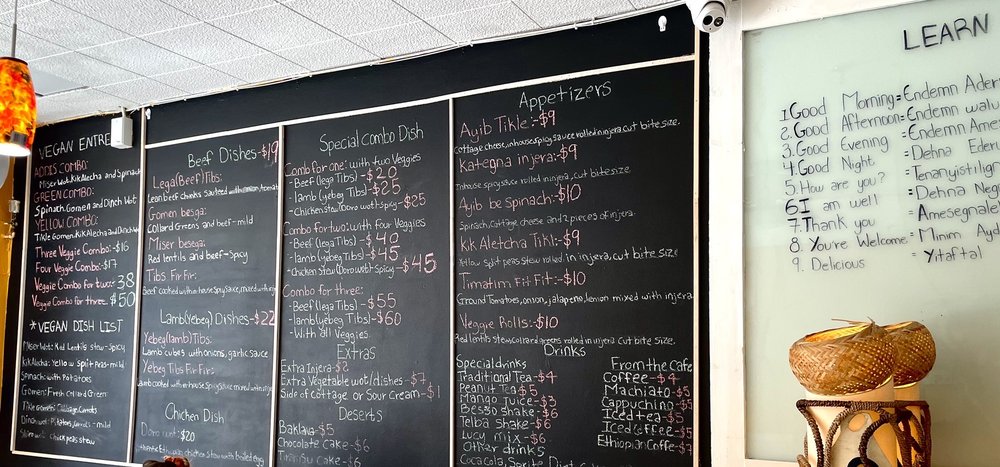 VEGAN ENTRE
ADDIS COMBO:
Miser Wot, Kik Alecha and Spinach
GREEN COMBO:
Spinach, Gomen and Dinch Wot
YELLOW COMBO:
Tikle Gomen, Kik Alecha and Dinch Wot
Three Veggie Combo:-$16
Four Veggie Combo:-$17
Veggie Combo for two: 38
Veggie Combo for three: $50
*VEGAN DISH LIST
Miser Wot: Red Lentils stew-Spicy
Kik Alecha: Yellow Split Peas-mild
Spinach: with Potatoes
Gomen: Fresh Collard Green
Tikle Gomen: Cabbage, Carrots
Dinch Wot: Potatoes, Carrots-mild
Shiro Wot: Chuck peas Stew
Beef Dishes-$19
Lega(Beef)Tibs:
Lean beef chunks Sauteed with onion, tomato
Gomen besga:
Collard Greens and beef-mild
Miser besega:
Red lentils and beef-Spicy
Tibs Fir Fir:
Beef cooked with in house Spicy Sauce, mixed with injera
Lamb(Yebeg) Dishes-$22
Yebeg(lamb)Tibs:
Lamb cubes with onions, garlic sauce
Yebeg Tibs Fir Fir:
Lamb cooked with in house Spicy sauce mixed with injera
Chicken Dish
Doro wot: $20
authentic Ethiopian chicken stew with boiled egg
Special Combo Dish
Combo for one: with two Veggies
-Beef (lega Tibs)-$20
-lamb (yebeg Tibs)-$25
-Chicken stew (Doro wot)-Spicy-$25
Combo for two: with four Veggies
-Beef (lega Tibs)-$40
-lamb (yebeg Tibs)-$45
-Chicken stew (Doro wot)-Spicy-$45
Combo for three:
-Beef (lega Tibs)-$55
-lamb (yebeg Tibs)-$60
-With all Veggies
Extras
Extra Injera-$2
Extra Vegetable wot/dishes-$7
Side of cottage or Sour Cream-$1
Deserts
Baklava-$5
Chocolate Cake-$6
Tiramisu Cake-$6
Appetizers
Ayib Tikle:-$9
cottage cheese, in house spicy sauce rolled in injera, cut bite size.
Kategna injera:-$9
Inhouse spicy sauce rolled in injera, cut bite size
Ayib be Spinach:-$10
Spinach, Cottage cheese and 2 pieces of injera
Kik Aletcha Tikl:-$9
Yellow Split peas stew rolled in injera, cut bite size
Timatim Fit Fit:-$10
Ground Tomatoes, onion, jalapeno, lemon mixed with injera
Veggie Rolls:-$10
Red lentils stew, collard greens rolled in injera cut bite Size.
Drinks
Special drinks
Traditional Tea-$4
Peanut Tea $5
Mango juice-$3
Beszo Shake-$6
Telba Shake-$6
Lucy mix-$6
Other drinks
Coca Cola, Sprite, Diet
From the Cafe
Coffee-$4
Machiato-$5
Cappuchino-$5
Iced tea-$5
Iced Coffee-$5
Ethiopian Coffe-$7
LEARN
1. Good Morning = Endemn Ader
2. Good Afternoon = Endemn walu
3. Good Evening = Endemn Ame
4. Good Night = Dehna Ederu
5. How are you? = Tenanyistilign
6. I am well = Dehna Neg
7. Thank you = Amesegnale
8. You're Welcome = Minim Ayd
9. Delicious = Yitaftal